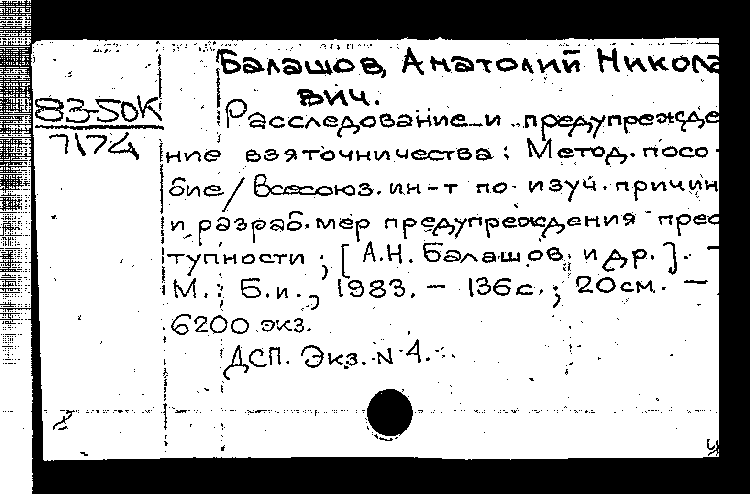 Балашов, Анатолий Никола
вич.
83-50К
7174
Расследование и предупрежде
ние взяточничества: Метод. посо-
бие/Всесоюз. ин-т по изуч. причин
и разраб. мер предупреждения прес
тупности; [А.Н. Балашов и др.]. -
М.: Б.и., 1983. - 136с.; 20см. -
6200 экз.
ДСП. Экз. N 4.